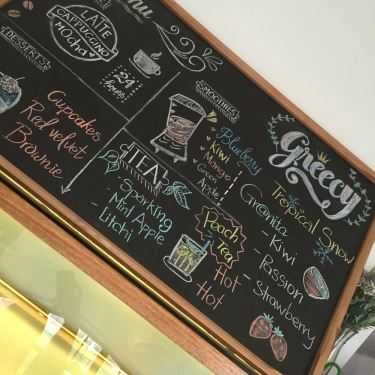 Menu
LATTE
CAPPUGGING
MOcha
DESSERTS
Cupcakes
Red velvet
Brownie
24
SMOOTHIES
Blueberry
Kiwi
Mango
Apple
TEA
Sparking
Mint Apple
Litchi
Peach
Tea
Hot
Hot
Greecy
Tropical Snow
Granita
- Kiwi
- Passion
- Strawberry